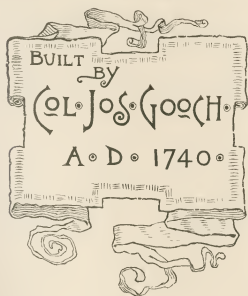 BUILT
BY
COL • JOS • GOOCH •
A • D • 1740 •